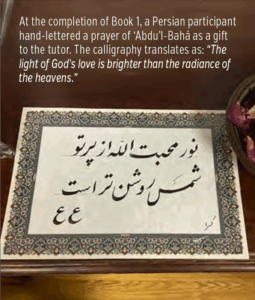 At the completion of Book 1, a Persian participant
hand-lettered a prayer of ‘Abdu’l-Bahá as a gift
to the tutor. The calligraphy translates as: “The
light of God’s love is brighter than the radiance of
the heavens.”
نور محبت الله از پرتو
شمس روشن تر است
ع ع